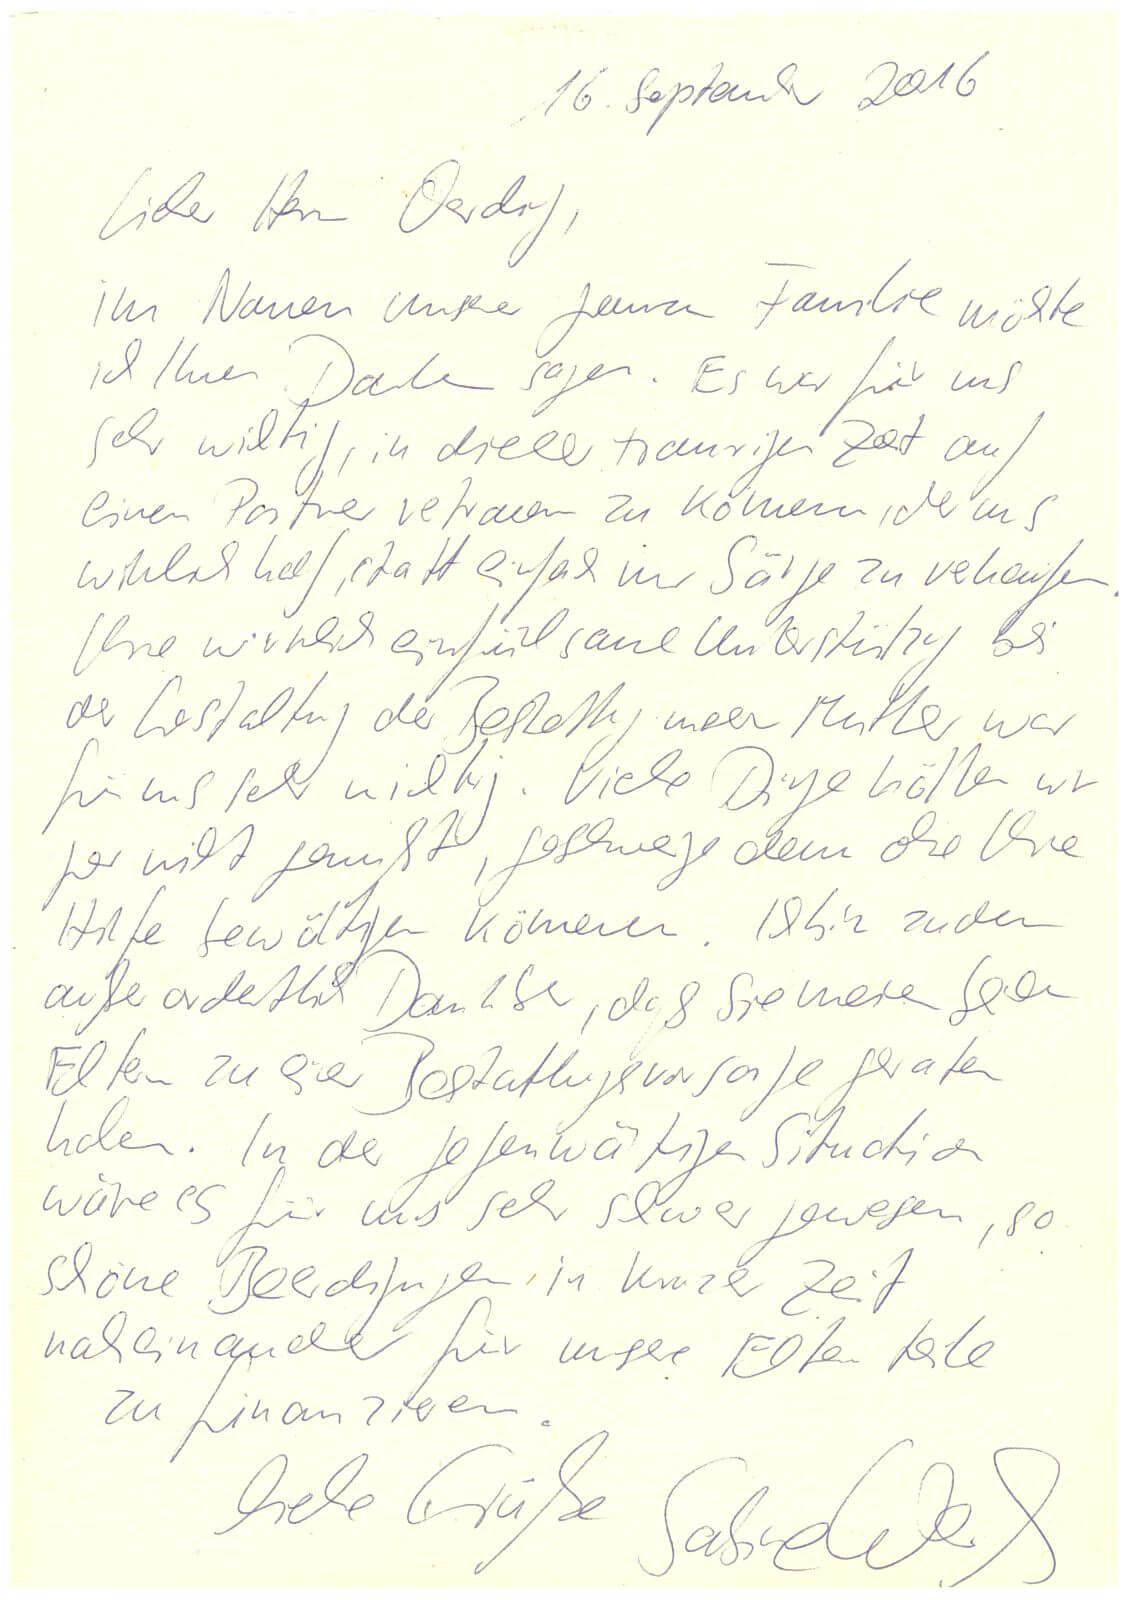 16. September 2016
Lieber Herr Oerding,
im Namen unserer ganzen Familie möchte
ich Ihnen Danke sagen. Es war für uns
sehr wichtig, in dieser traurigen Zeit auf
einen Partner vertrauen zu können, der uns
wirklich half, statt einfach nur Särge zu verkaufen.
Ihre wirklich einfühlsame Unterstützung bei
der Gestaltung der Bestattung meiner Mutter war
für uns sehr wichtig. Viele Dinge hätten wir
gar nicht gewußt, geschweige denn ohne Ihre
Hilfe bewältigen können. Ich bin zudem
außerordentlich Dankbar, daß Sie meinen beiden
Eltern zu einer Bestattungsvorsorge geraten
haben. In der gegenwärtigen Situation
wäre es für uns sehr schwer gewesen, so
schöne Beerdigungen in kurzer Zeit
nacheinander für unsere Elternteile
zu finanzieren.
Liebe Grüße Sabine